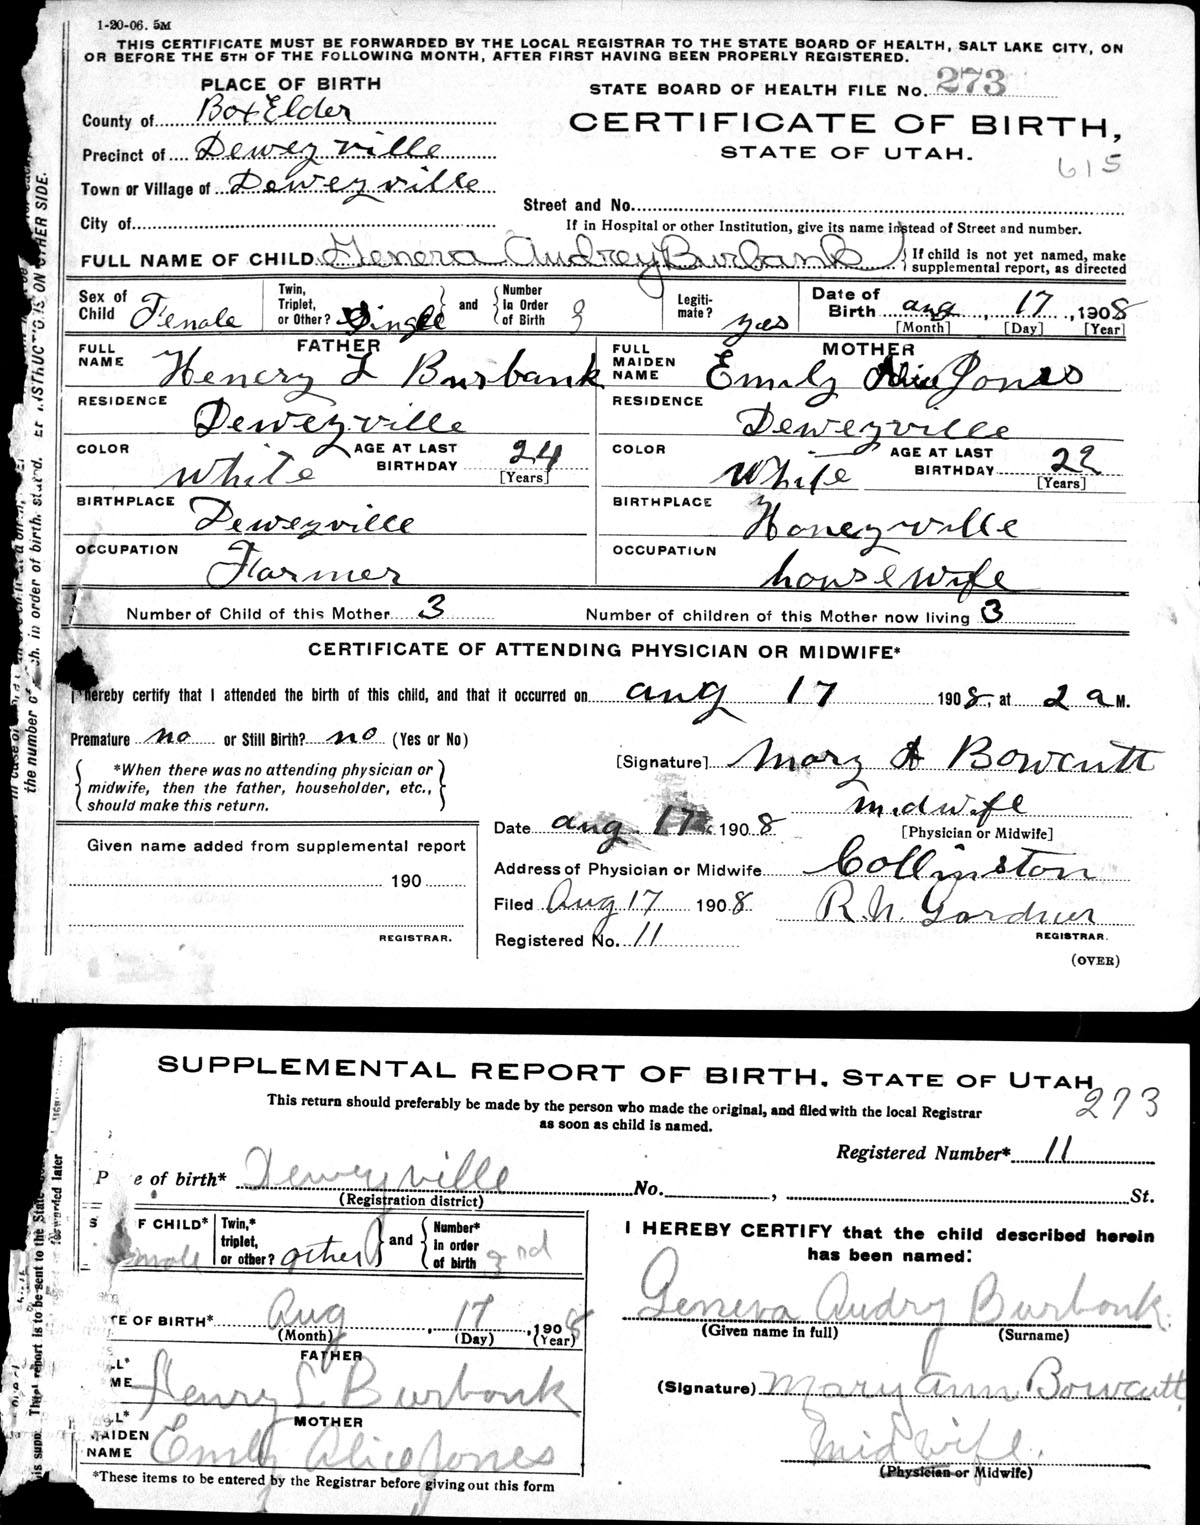 1-20-06. 5M
THIS CERTIFICATE MUST BE FORWARDED BY THE LOCAL REGISTRAR TO THE STATE BOARD OF HEALTH, SALT LAKE CITY, ON
OR BEFORE THE 5TH OF THE FOLLOWING MONTH, AFTER FIRST HAVING BEEN PROPERLY REGISTERED.
PLACE OF BIRTH
STATE BOARD OF HEALTH FILE No. 273
County of Box Elder
CERTIFICATE OF BIRTH,
STATE OF UTAH.
615
Precinct of Deweyville
Town or Village of Deweyville
Street and No.
City of
If in Hospital or other Institution, give its name instead of Street and number.
FULL NAME OF CHILD Geneva Audrey Burbank
If child is not yet named, make
supplemental report, as directed
Sex of Child Female
Twin, Triplet, or Other? Single
and
Number in Order of Birth 3
Legitimate? yes
Date of Birth aug 17, 1908
[Month] [Day] [Year]
FATHER
FULL NAME Henery L Burbank
MOTHER
FULL MAIDEN NAME Emily Alice Jones
RESIDENCE Deweyville
RESIDENCE Deweyville
COLOR White
AGE AT LAST BIRTHDAY 24 [Years]
COLOR White
AGE AT LAST BIRTHDAY 22 [Years]
BIRTHPLACE Deweyville
BIRTHPLACE Honeyville
OCCUPATION Farmer
OCCUPATION housewife
Number of Child of this Mother 3
Number of children of this Mother now living 3
CERTIFICATE OF ATTENDING PHYSICIAN OR MIDWIFE*
I hereby certify that I attended the birth of this child, and that it occurred on aug 17 1908, at 2 a M.
Premature no or Still Birth? no (Yes or No)
[Signature] Mary A Bowcutt
*When there was no attending physician or
midwife, then the father, householder, etc.,
should make this return.
midwife
[Physician or Midwife]
Date aug 17 1908
Given name added from supplemental report
190
REGISTRAR.
Address of Physician or Midwife Collinston
Filed Aug 17 1908
R.N. Gardner
REGISTRAR.
Registered No. 11
(OVER)
in order of birth, stated.
INSTRUCTIONS ON OTHER SIDE.
the number of
SUPPLEMENTAL REPORT OF BIRTH, STATE OF UTAH
273
This return should preferably be made by the person who made the original, and filed with the local Registrar
as soon as child is named.
Registered Number* 11
P e of birth* Deweyville No. , St.
(Registration district)
S F CHILD* male
Twin,* triplet, or other? other
and
Number* in order of birth 3rd
I HEREBY CERTIFY that the child described herein
has been named:
Geneva Audry Burbank
(Given name in full) (Surname)
TE OF BIRTH* Aug 17, 1908
(Month) (Day) (Year)
FATHER
ME Henry L Burbank
(Signature) Mary Ann Bowcutt
MOTHER
AIDEN NAME Emily Alice Jones
Midwife.
(Physician or Midwife)
*These items to be entered by the Registrar before giving out this form
report is to be sent to the State
forwarded later